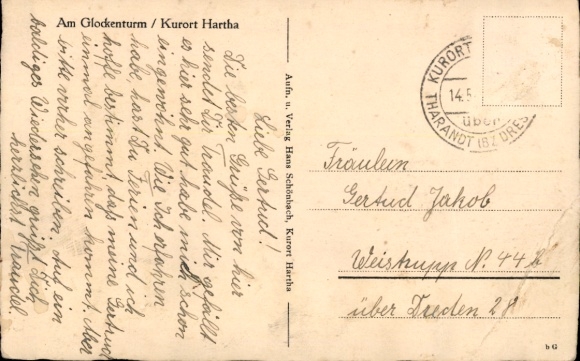 Am Glockenturm / Kurort Hartha
Liebe Gertrud!
Die besten Grüße von hier
sendet Dir Traudel. Mir gefällt
es hier sehr gut habe mich schon
eingewöhnt. Wie Ich erfahren
habe, hast Du Ferien und ich
hoffe bestimmt, daß meine Gertrud
einmal angefahren kommt. Aber
bitte vorher schreiben. Auf ein
baldiges Wiedersehen grüßt Dich
herzlichst Traudel.
Aufn. u. Verlag Hans Schönbach, Kurort Hartha
KURORT
14.5
ÜBER
THARANDT (BZ DRES
Fräulein
Gertud Jakob
Weistrupp N 44
über Dresden 28
b G